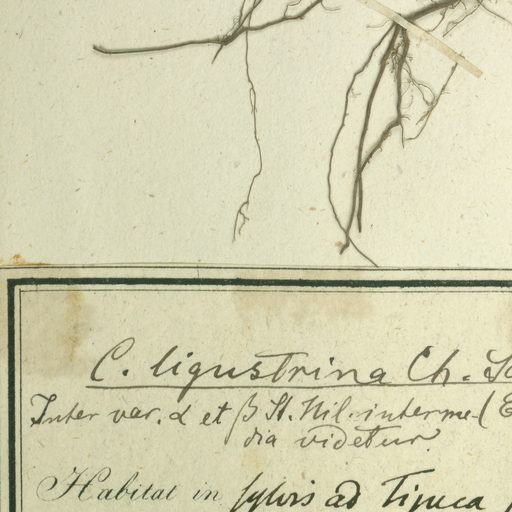 C. ligustrina Ch.
Inter var. α et β St. Hil. interme-
dia videtur.
Habitat in sylvis ad Tijuca